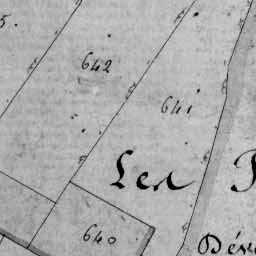 5.
642
641
Les
640